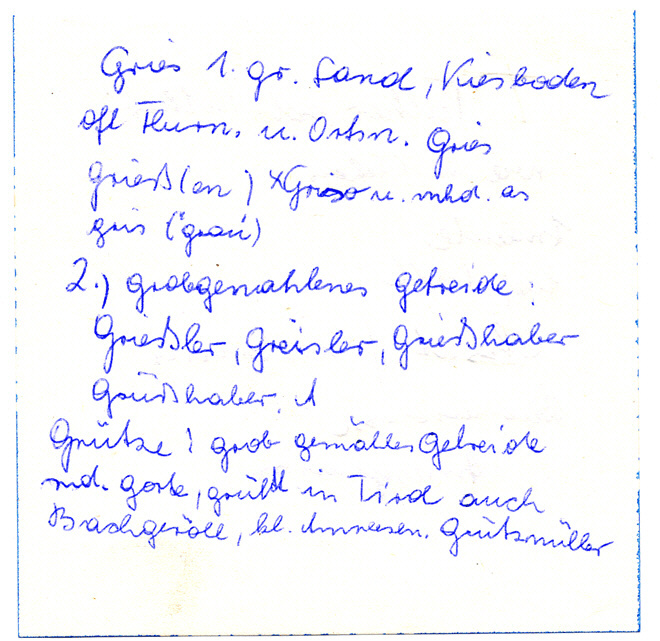 Gries 1. gr. Sand, Kiesboden
oft Flurn. u. Ortsn. Gries
Grieß(en) u. mhd. as
gris ("grau")
2.) grobgemahlenes Getreide:
Grießler, Greisler, Grießhaber
Grüßhaber.
Grütze: grob gemalles Getreide
md. in Tirol auch
Bachgeröll, kl. Anwesen. Grützmüller